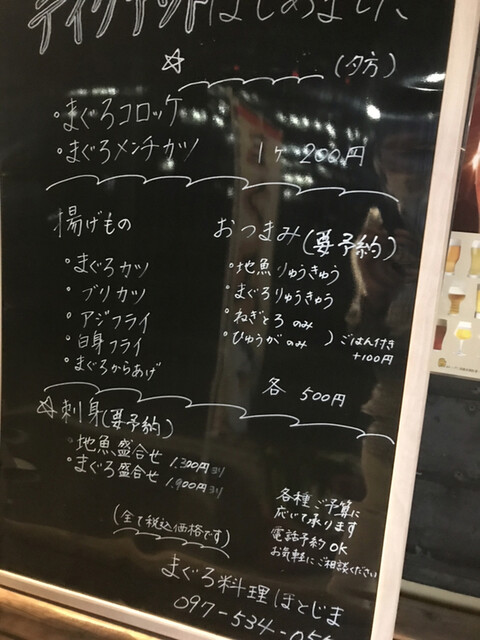 テイクアウトはじめました
(夕方)
・まぐろコロッケ
・まぐろメンチカツ 1ケ 200円
揚げもの
・まぐろカツ
・ブリカツ
・アジフライ
・白身フライ
・まぐろからあげ
おつまみ(要予約)
・地魚りゅうきゅう
・まぐろりゅうきゅう
・ねぎとろのみ
・ひゅうがのみ ) ごはん付き
+100円
各 500円
☆刺身(要予約)
・地魚盛合せ 1,300円ヨリ
・まぐろ盛合せ 1,900円ヨリ
(全て税込価格です)
各種ご予算に
応じて承ります
電話予約OK
お気軽にご相談ください
まぐろ料理ほとじま
097-534-